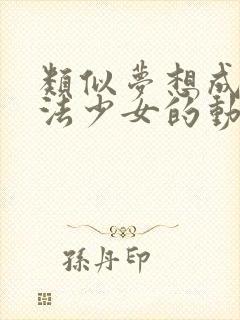 類似夢想成
法少女的動
孫丹印